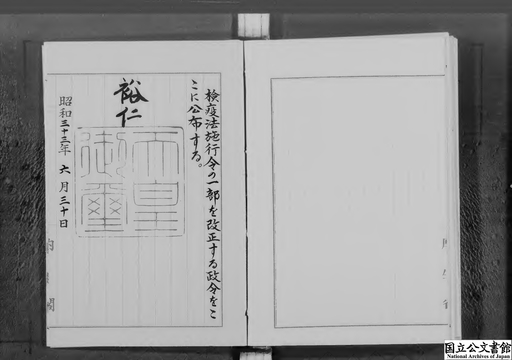 検疫法施行令の一部を改正する政令をこ
こに公布する。
裕仁
天皇
御璽
昭和三十三年 六月三十日
内閣
国立公文書館
National Archives of Japan